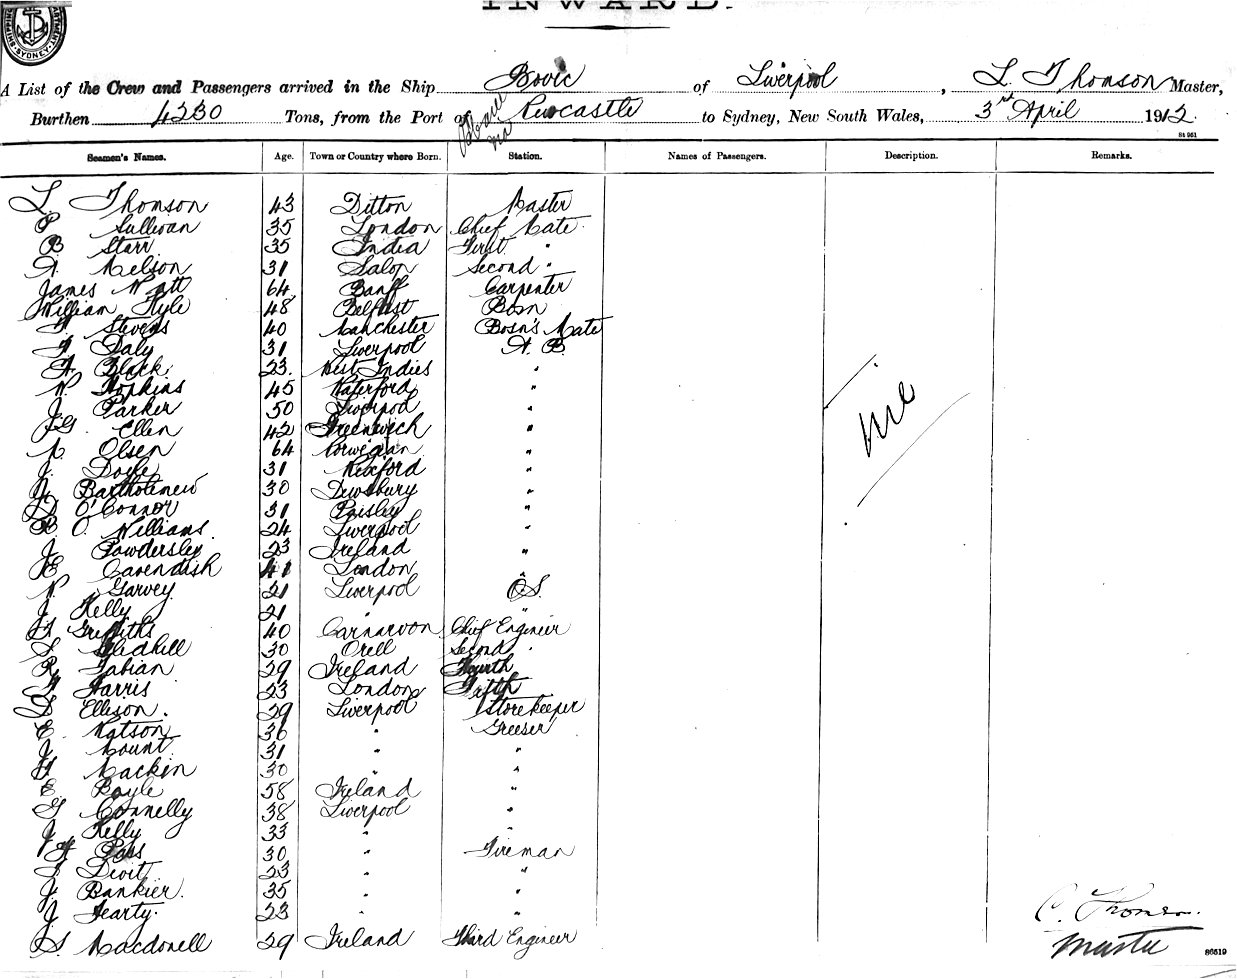 INWARD.
SYDNEY
A List of the Crew and Passengers arrived in the Ship Bovic of Liverpool, L. Thomson Master,
Burthen 4230 Tons, from the Port of Newcastle to Sydney, New South Wales, 3rd April 1912.
84 951
Seamen's Names. Age. Town or Country where Born. Station. Names of Passengers. Description. Remarks.
L. Thomson 43 Ditton Master
P Sullivan 35 London Chief Mate
B Starr 35 India First "
A. Nelson 31 Salop Second "
James Watt 64 Banff Carpenter
William Kyle 48 Belfast Bosn
Stevens 40 Manchester Bosn's Mate
Daly 31 Liverpool A. B.
A. Black 23. West Indies "
W. Hopkins 45 Waterford "
J. Parker 50 Liverpool "
J.G. Ellen 42 Greenwich "
Olsen 64 Norwegian "
J. Doyle 31 Wexford "
Bartholomew 30 Dewsbury "
D O'Connor 31 Paisley "
B. O. Williams. 24 Liverpool "
J. Powdersley 23 Ireland "
E Cavendish 41 London "
W. Garvey 21 Liverpool O.S.
J. Kelly 21 " "
Griffiths 40 Carnarvon Chief Engineer
S. Gledhill 30 Orell Second "
R. Fabian 29 Ireland Fourth
Harris 23 London Fifth
Ellison. 29 Liverpool Storekeeper
E. Watson 36 " Greeser
J. Mount 31 " "
Mackin 30 " "
E. Boyle 58 Ireland "
Connelly 38 Liverpool "
J. Kelly 33 " "
Pass 30 " Fireman
Devit. 23 " "
J. Bankier. 35 " "
J. Fearty. 23 " "
S. Macdonell 29 Ireland Third Engineer
Nil
Thomson
Master
86519